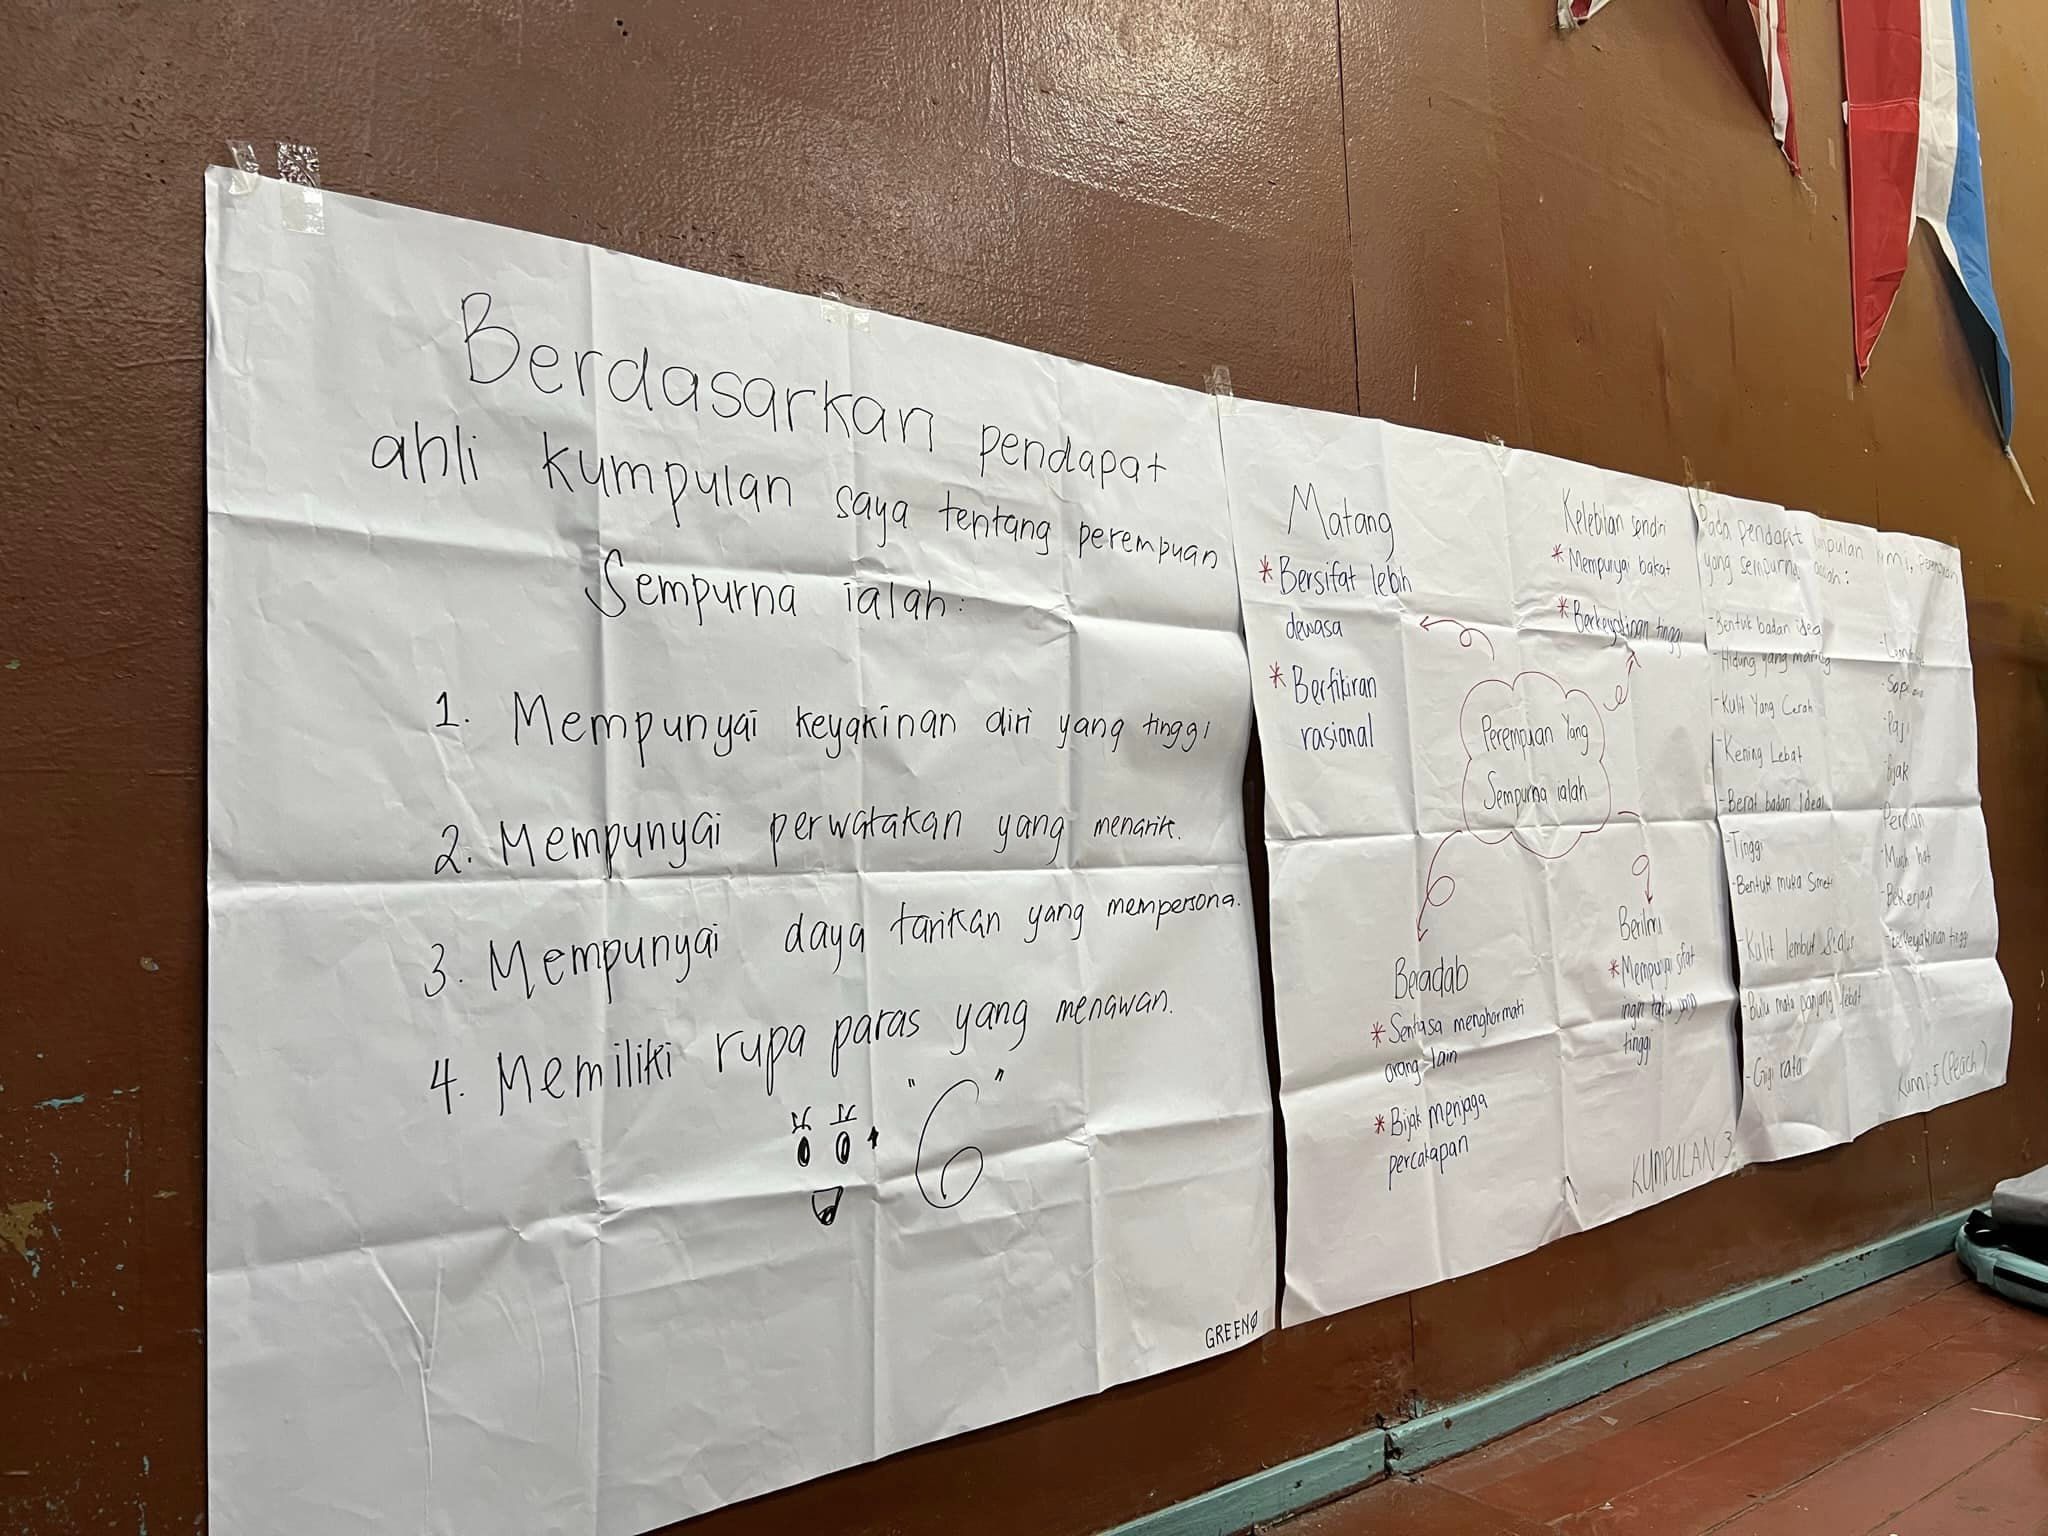 Berdasarkan pendapat
ahli kumpulan saya tentang perempuan
Sempurna ialah:
1. Mempunyai keyakinan diri yang tinggi
2. Mempunyai perwatakan yang menarik.
3. Mempunyai daya tarikan yang mempersona.
4. Memiliki rupa paras yang menawan.
"6"
GREEN
Matang
* Bersifat lebih
dewasa
* Berfikiran
rasional
Kelebihan sendiri
* Mempunyai bakat
* Berkeyakinan tinggi
Perempuan Yang
Sempurna ialah
Beradab
* Sentiasa menghormati
orang lain
* Bijak menjaga
percakapan
Berilmu
* Mempunyai sifat
ingin tahu yang
tinggi
KUMPULAN 3
Pada pendapat kumpulan kami, perempuan
yang sempurna adalah:
- Bentuk badan ideal
- Hidung yang mancung
- Kulit Yang Cerah
- Kening Lebat
- Berat badan Ideal
- Tinggi
- Bentuk muka Simetri
- Kulit lembut
- Bulu mata panjang lebat
- Gigi rata
- Bijak
- Bekerjaya
- berkeyakinan tinggi
Kump 5 (Peach)